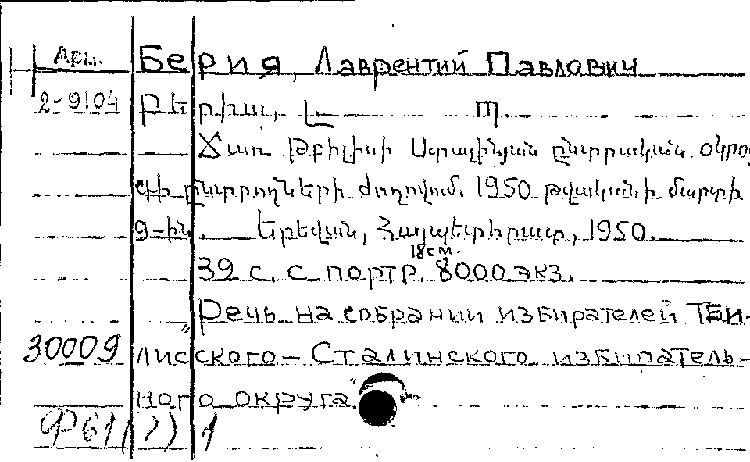 Арм. Берия, Лаврентий Павлович
2-9104 Բերիա, Լ. Պ.
Ճառ Թբիլիսի Ստալինյան ընտրական օկրու-
գի ընտրողների ժողովում 1950 թվականի մարտի
9-ին. Երևան, Հայպետհրատ, 1950.
18 см.
39 с. с портр. 8000 экз.
Речь на собрании избирателей Тби-
30009 лисского-Сталинского избиратель-
ного округа